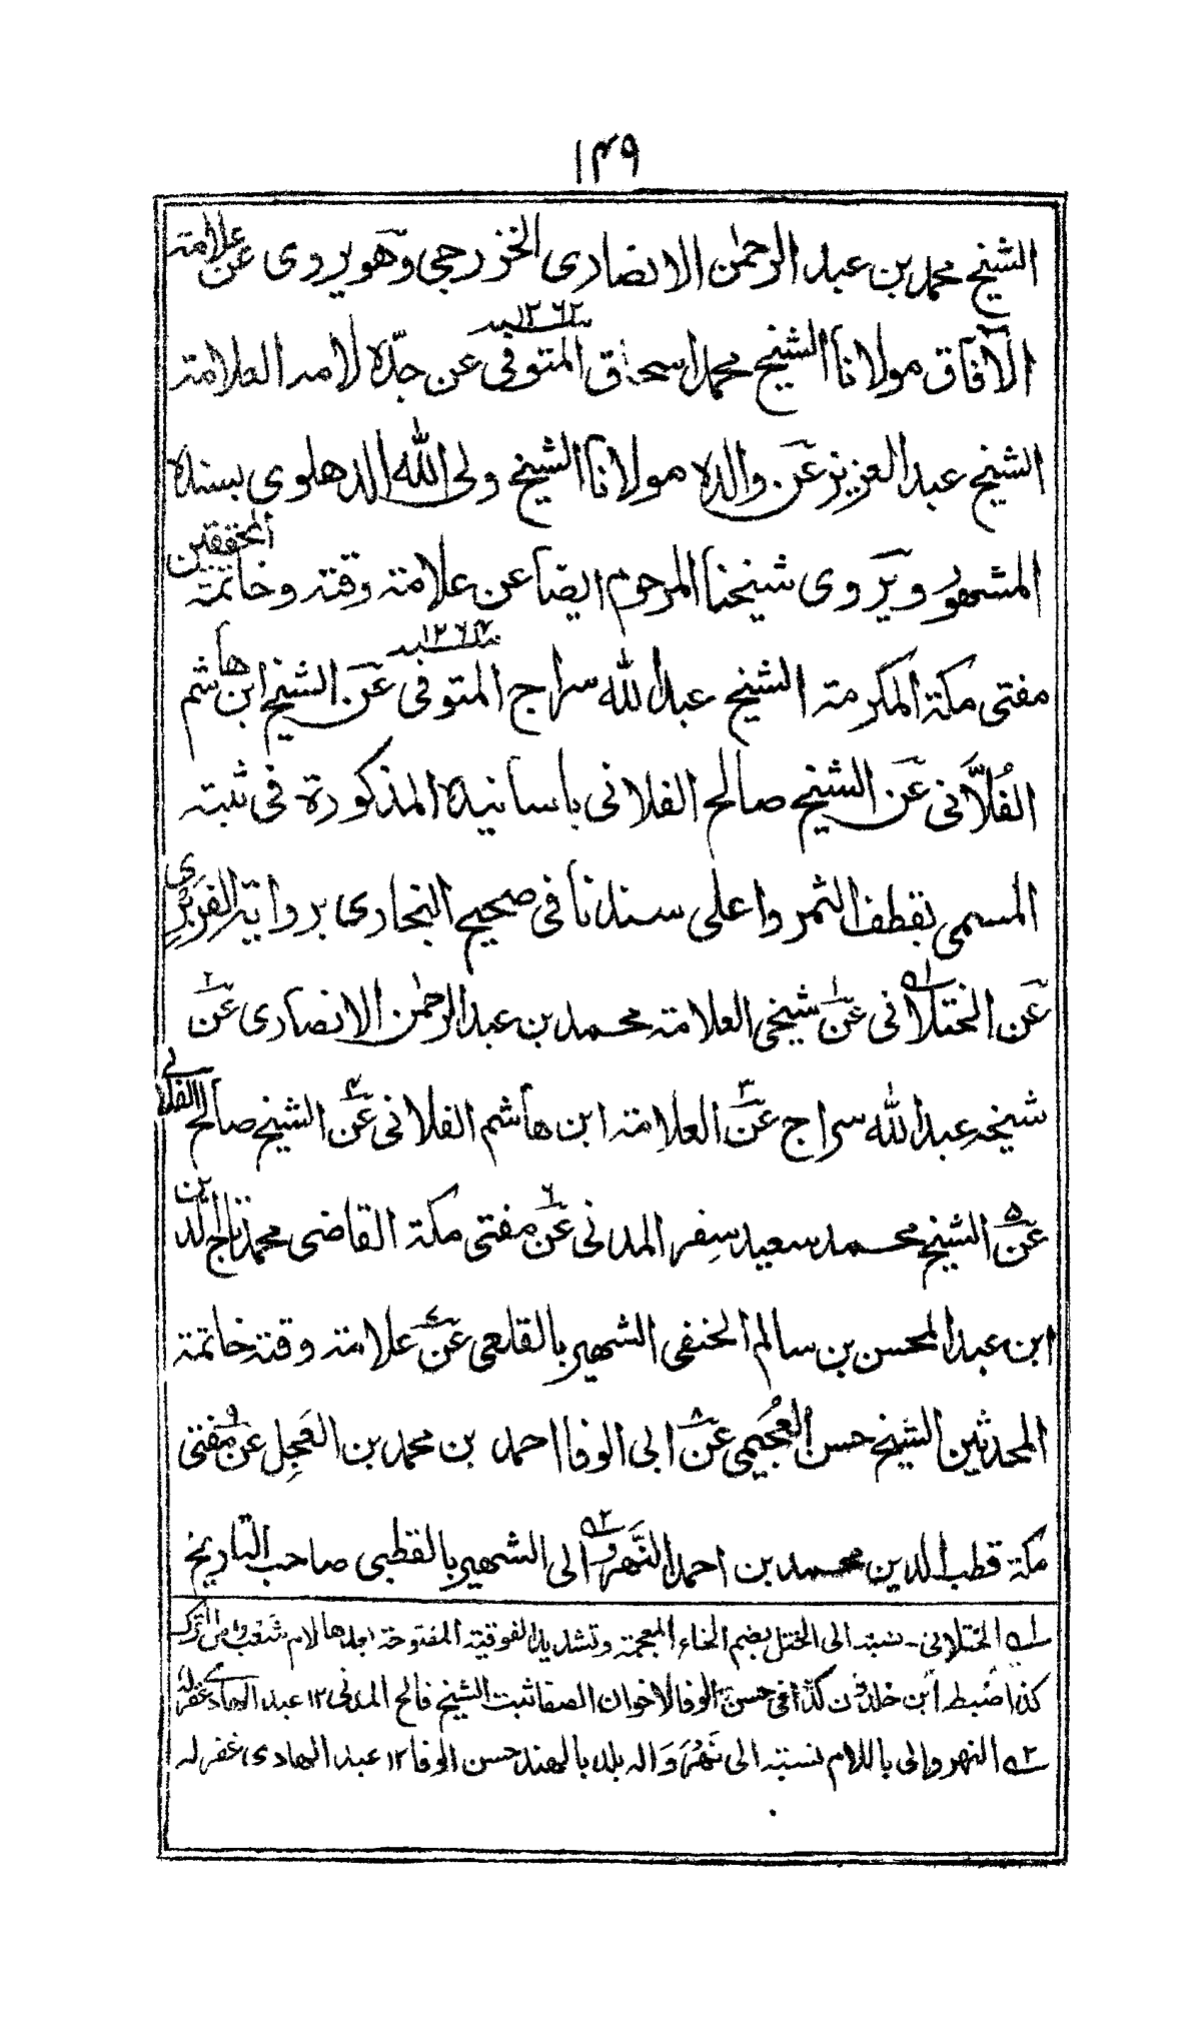 ١٤٩
الشيخ محمد بن عبد الرحمٰن الانصارى الخزرجى وهو يروى عن علامة
الآفاق مولانا الشيخ محمد اسحاق المتوفى سنة ١٢٦٢ عن جدّه لامه العلامة
الشيخ عبد العزيز عن والده مولانا الشيخ ولى الله الدهلوى بسنده
المشهور ويروى شيخنا المرحوم ايضا عن علامة وقته وخاتمة المحققين
مفتى مكة المكرمة الشيخ عبد الله سراج المتوفى سنة ١٢٦٤ عن الشيخ ابن هاشم
الفُلَّانى عن الشيخ صالح الفلانى باسانيده المذكورة فى ثبته
المسمى بقطف الثمر واعلى سندنا فى صحيح البخارى برواية الفربرى
عن الختلانى ١ه عن ١ شيخى العلامة محمد بن عبد الرحمٰن الانصارى عن ٢
شيخه عبد الله سراج عن ٣ العلامة ابن هاشم الفلانى عن ٤ الشيخ صالح الفلانى
عن ٥ الشيخ محمد سعيد سِفر المدنى عن ٦ مفتى مكة القاضى محمد تاج الدين
ابن عبد المحسن بن سالم الحنفى الشهير بالقلعى عن ٧ علامة وقته خاتمة
المحدثين الشيخ حسن العُجَيمى عن ٨ ابى الوفا احمد بن محمد بن العَجِل عن ٩ مفتى
مكة قطب الدين محمد بن احمد النَّهروالى ٢ه الشهير بالقطبى صاحب التاريخ
١ه الختلانى - نسبة الى الختل بضم الخاء المعجمة وتشديد الفوقية المفتوحة بعدها لام شعب من الترك
كذا ضبطه ابن خلدون كذا فى حسن الوفا لاخوان الصفا ثبت الشيخ فالح المدنى ١٢ عبد الهادى غفر له
٢ه النهروالى باللام نسبة الى نَهْرَوَاله بلد بالهند حسن الوفا ١٢ عبد الهادى غفر له